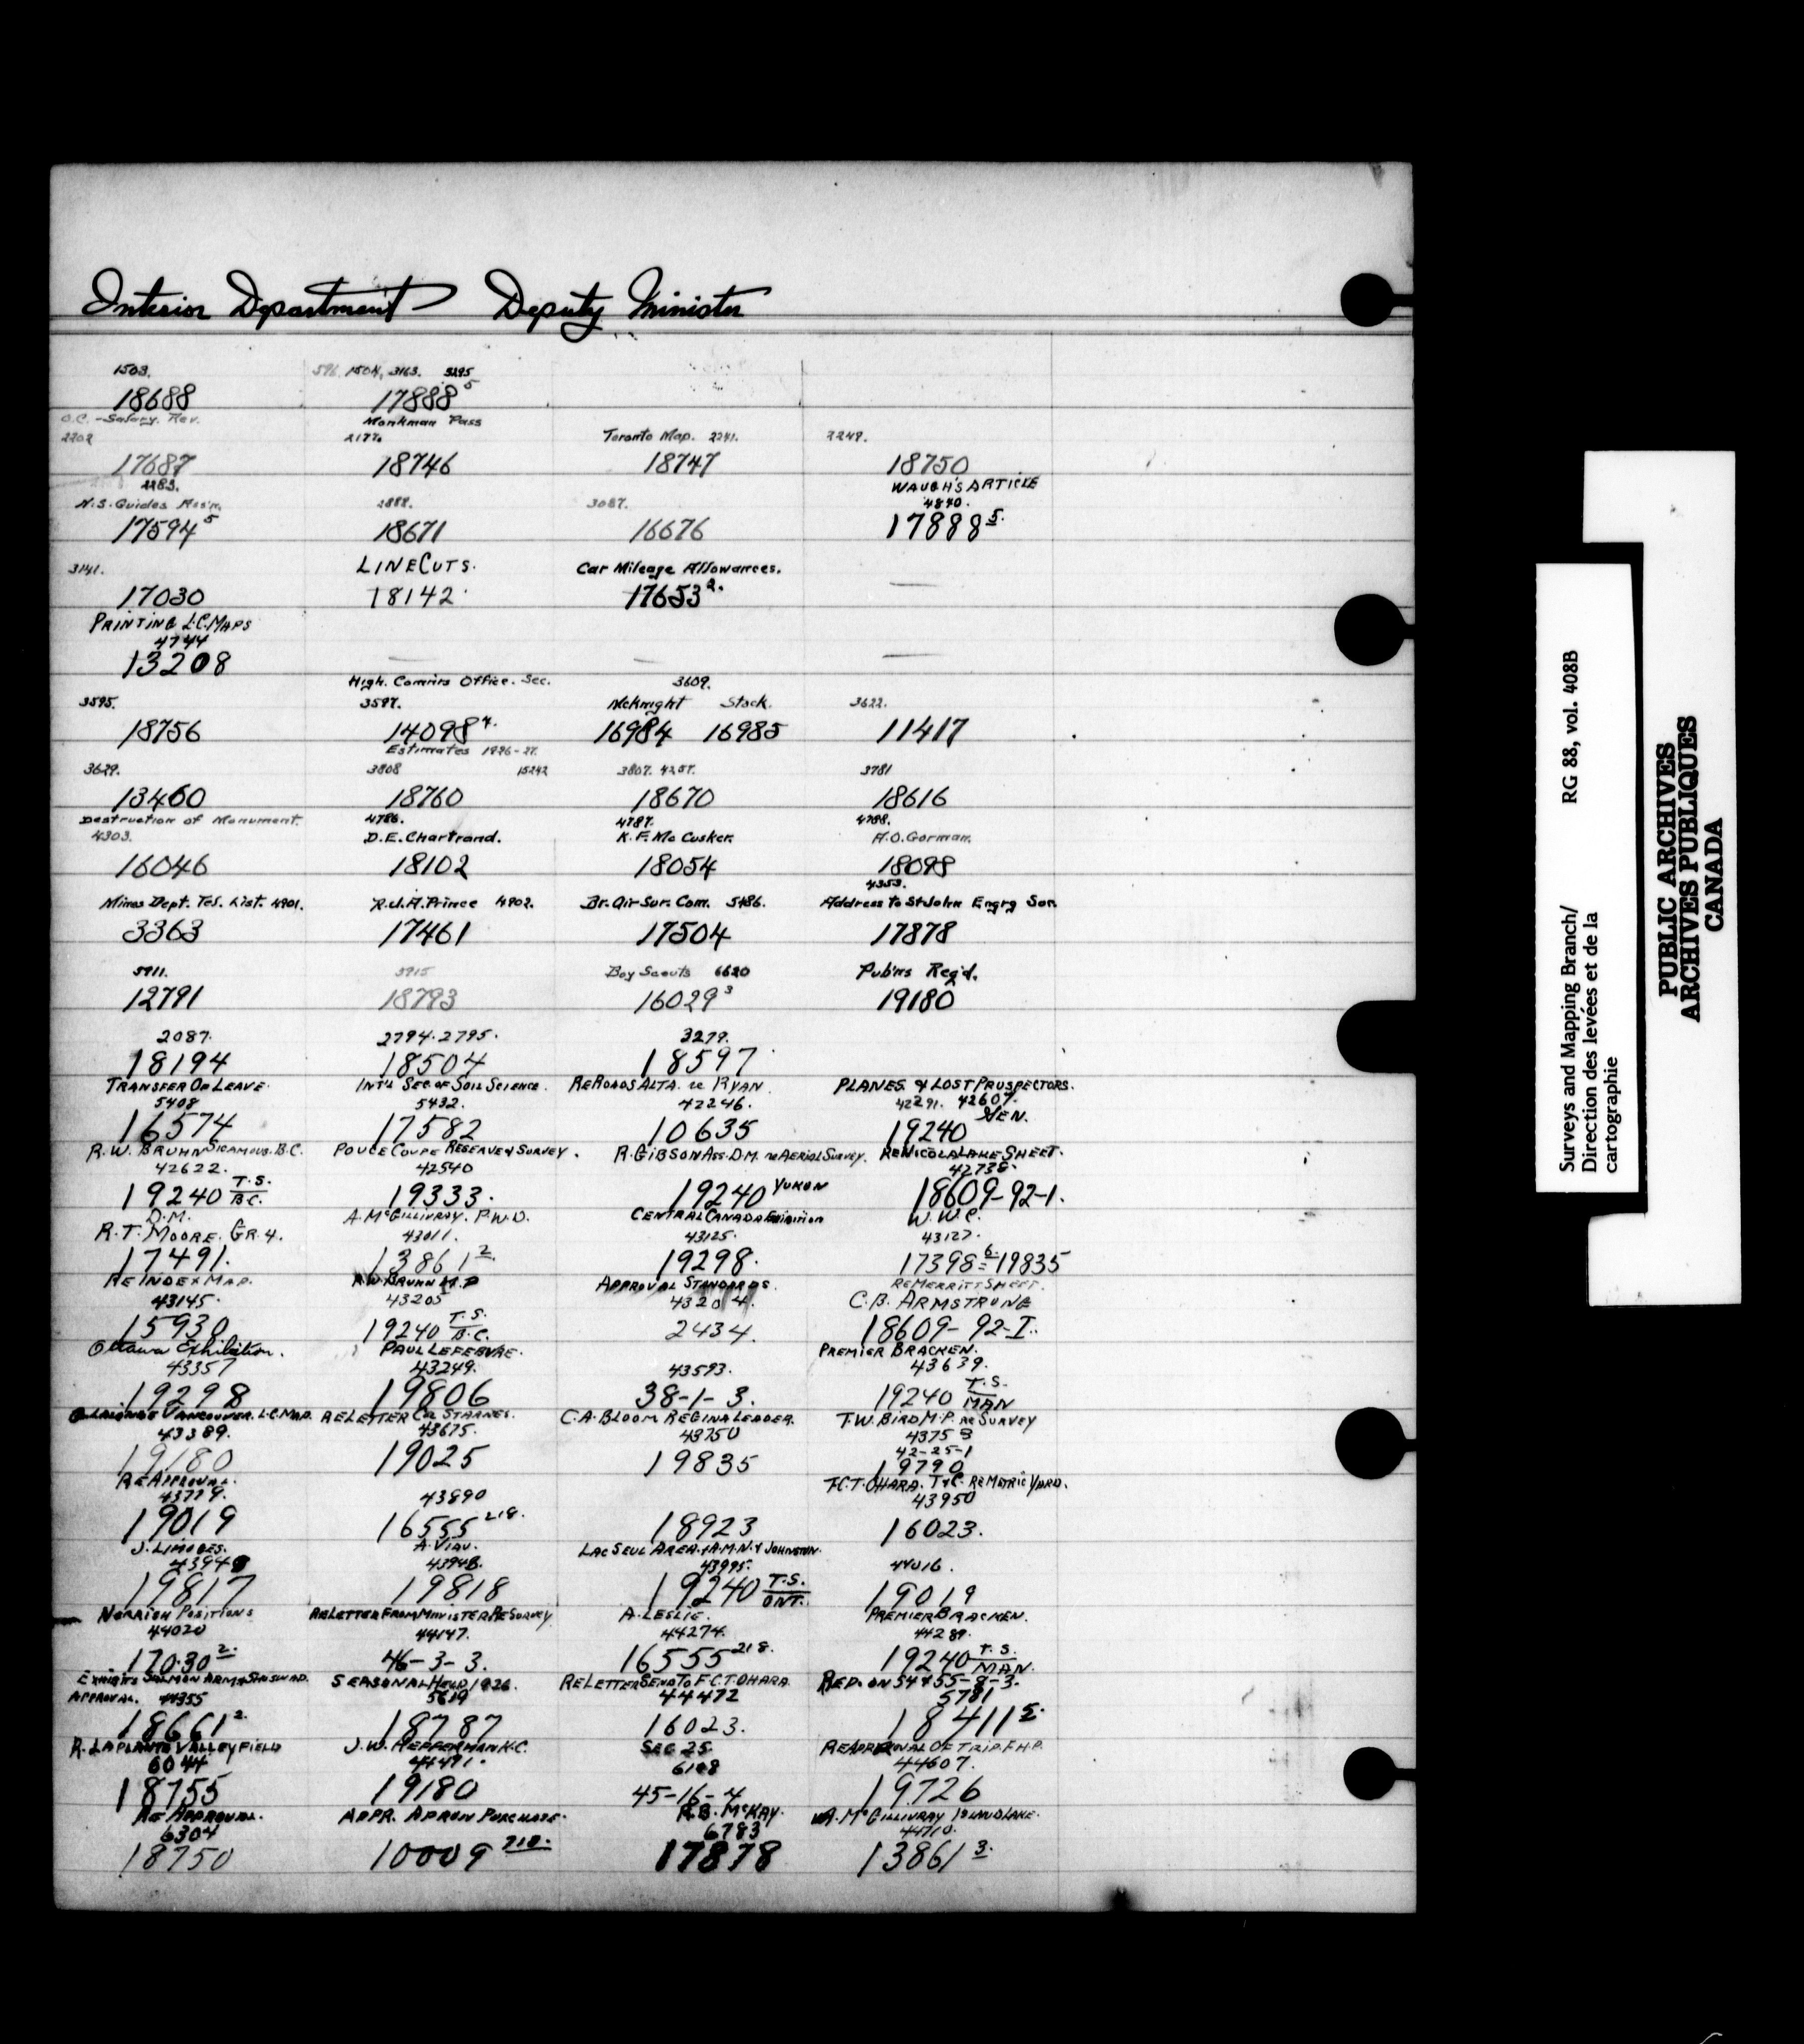 Interior Department Deputy Minister
1503. 596, 1504, 3163. 3295
18688 17888 5
O.C. - Salary. Rev. Monkman Pass
2202 2177. Toronto Map. 2241. 2249.
17687 18746 18747 18750
2283. WAUGH'S ARTICLE
N.S. Guides Ass'n. 2888. 3087. 4840.
17594 5 18671 16676 17888 5.
3141. LINE CUTS. Car Mileage Allowances.
17030 18142. 17653 2.
PRINTING L.C. MAPS
4744
13208
High. Comm'rs Office. Sec. 3609.
3595. 3597. McKnight Stock. 3622.
18756 14098 4. 16984 16985 11417
Estimates 1926-27.
3629. 3808 15242 3807. 4257. 3781
13460 18760 18670 18616
Destruction of Monument. 4786. 4787. 4788.
4303. D.E. Chartrand. K.F. McCusker. A.O. Gorman.
16046 18102 18054 18098
4353.
Mines Dept. Tel. List. 4901. R.J.A. Prince 4902. Br. Air Sur. Com. 5486. Address to St John Engrg Soc.
3363 17461 17504 17878
5911. 5915 Boy Scouts 6620 Pub'ns Req'd.
12791 18793 16029 3 19180
2087. 2794. 2795. 3279.
18194 18504 18597
TRANSFER OF LEAVE. INT'L SEC. OF SOIL SCIENCE. RE ROADS ALTA. re RYAN PLANES & LOST PROSPECTORS.
5408 5432. 42246. 42291. 42607.
16574 17582 10635 19240 GEN.
R.W. BRUHN SICAMOUS. B.C. POUCE COUPE RESERVE & SURVEY. R. GIBSON ASS. D.M. re AERIAL SURVEY. RE NICOLA LAKE SHEET.
42622. 42540 42738.
19240 T.S. B.C. 19333. 19240 YUKON 18609-92-1.
D.M. A. McGILLIVRAY. P.W.D. CENTRAL CANADA Exhibition W.W.C.
R.T. MOORE. GR. 4. 43011. 43125. 43127.
17491. 13861 2. 19298. 17398 6. = 19835
RE INDEX MAP. R.W. BRUHN M.P APPROVAL STANDARDS. RE MERRITT SHEET.
43145. 43205 43204. C.B. ARMSTRONG
15930 19240 T.S. B.C. 2434. 18609-92-I.
Ottawa Exhibition. PAUL LEFEBVRE. PREMIER BRACKEN.
43357 43249. 43593. 43639.
19298 19806 38-1-3. 19240 T.S. MAN
LALONDE VANCOUVER. L.C. MAP. RE LETTER Col. STARNES. C.A. BLOOM REGINA LEADER. T.W. BIRD M.P. re SURVEY
43389. 43675. 43750 43753
42-25-1
19180 19025 19835 19790
RE APPROVAL. F.C.T. OHARA. T&C. RE METRIC YARD.
43779. 43890 43950
19019 16555 218. 18923 16023.
J. LIMOGES. A. VIAU. LAC SEUL AREA. & A.M.N. & JOHNSTON.
43948 43948. 43995. 44016.
19817 19818 19240 T.S. ONT. 19019
NORRISH POSITIONS RE LETTER FROM MINISTER RE SURVEY A. LESLIE. PREMIER BRACKEN.
44020 44147. 44274. 44289.
17030 2. 46-3-3. 16555 218. 19240 T.S. MAN.
EXHIBITS SALMON ARM & SHUSWAP. SEASONAL HELP 1926. RE LETTER SEND TO F.C.T. OHARA REP. ON 54 & 55-8-3.
APPROVAL. 44355 5619 44472 5781
18661 2. 18787 16023. 18411 5.
R. LAPLANTE VALLEYFIELD J.W. HEFFERMAN K.C. SEC 25 RE APPROVAL OF TRIP. F.H.P.
6044 44491. 6128 44607.
18755 19180 45-16-4 19726
RE APPROVAL. APPR. APRON PURCHASE. R.B. McKAY. A. McGILLIVRAY ISLAND LAKE.
6304 6783 44710.
18750 10009 218. 17878 13861 3.
Surveys and Mapping Branch/ RG 88, vol. 408B
Direction des levées et de la
cartographie
PUBLIC ARCHIVES
ARCHIVES PUBLIQUES
CANADA